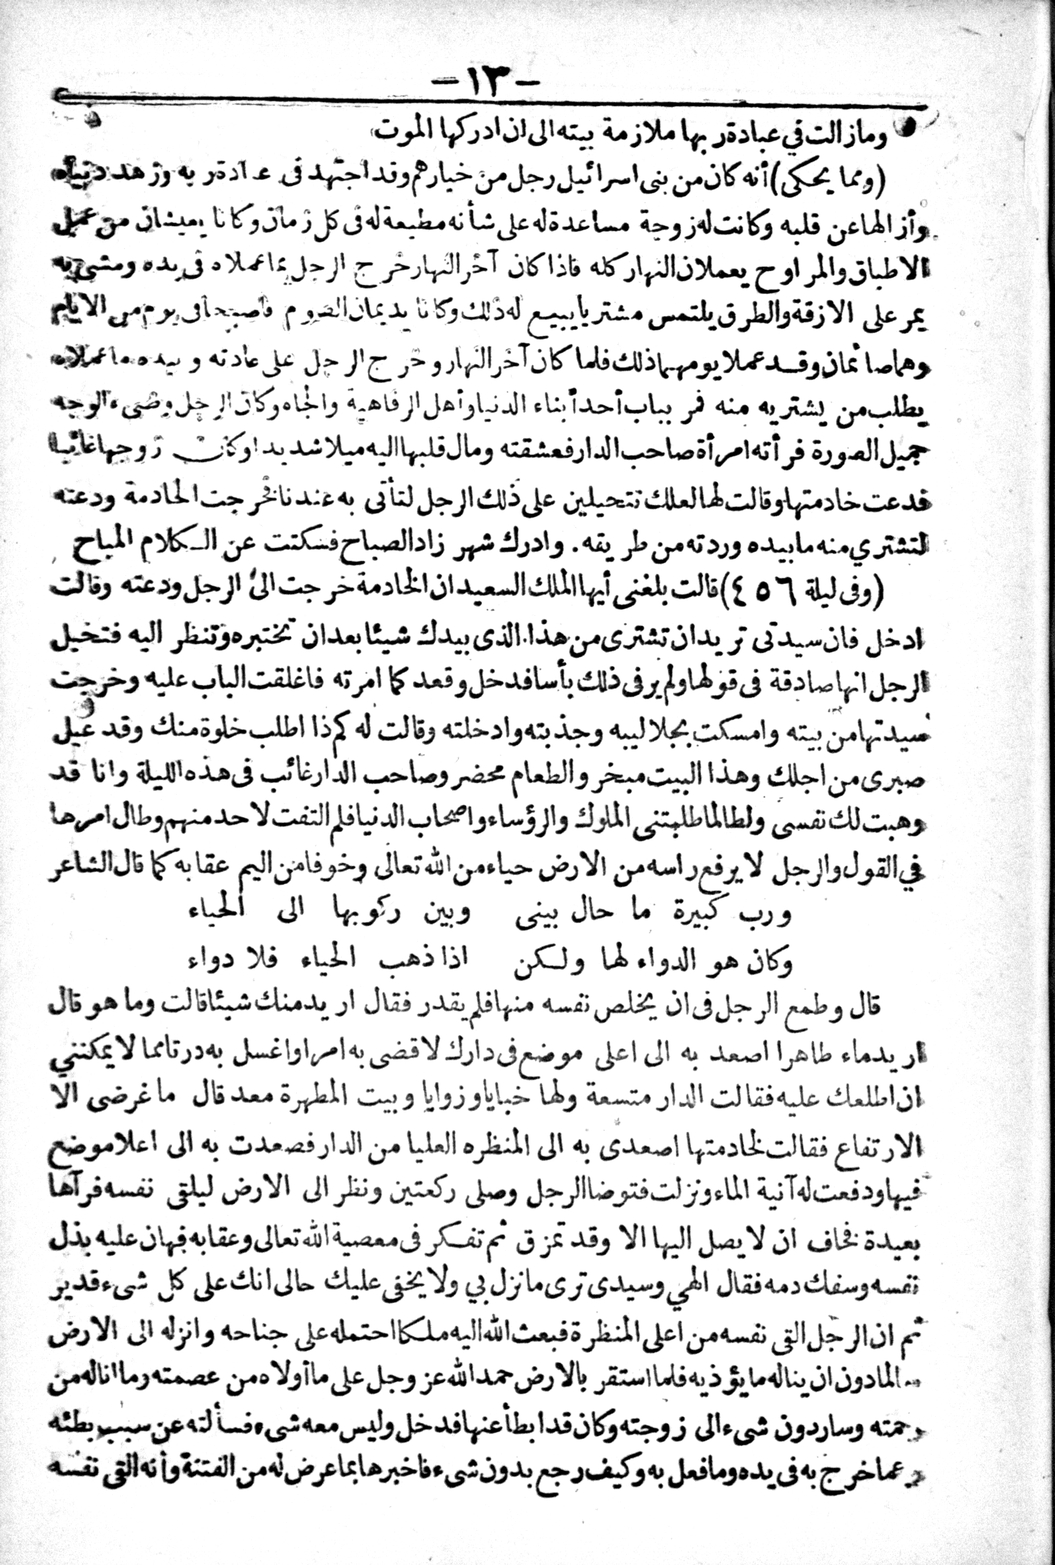 -١٣-
ومازالت في عبادة ربها ملازمة بيته الى ان ادركها الموت
(ومما يحكى) أنه كان من بنى اسرائيل رجل من خيارهم وقد اجتهد فى عبادة ربه وزهد دنياه
وأزالها عن قلبه وكانت له زوجة مساعدة له على شأنه مطيعة له فى كل زمان وكانا يعيشان من عمل
الاطباق والمراوح يعملان النهار كله فاذا كان آخر النهار خرج الرجل بما عملاه فى يده ومشى به
يمر على الازقة والطرق يلتمس مشتريا يبيع له ذلك وكانا يديمان الصوم فأصبحا فى يوم من الايام
وهما صائمان وقد عملا يومهما ذلك فلما كان آخر النهار وخرج الرجل على عادته وبيده ما عملاه
يطلب من يشتريه منه فمر بباب أحد أبناء الدنيا وأهل الرفاهية والجاه وكان الرجل وضىء الوجه
جميل الصورة فرأته امرأة صاحب الدار فعشقته ومال قلبها اليه ميلا شديدا وكان زوجها غائبا
فدعت خادمتها وقالت لها لعلك تتحيلين على ذلك الرجل لتأتى به عندنا فخرجت الخادمة ودعته
لتشتري منه ما بيده وردته من طريقه. وادرك شهر زاد الصباح فسكتت عن الكلام المباح
(وفى ليلة ٤٥٦) قالت بلغنى أيها الملك السعيد ان الخادمة خرجت الى الرجل ودعته وقالت
ادخل فان سيدتى تريد ان تشترى من هذا الذى بيدك شيئا بعد ان تختبره وتنظر اليه فتخيل
الرجل انها صادقة فى قولها ولم ير فى ذلك بأسا فدخل وقعد كما امرته فاغلقت الباب عليه وخرجت
سيدتها من بيته وامسكت بجلابيبه وجذبته وادخلته وقالت له كم ذا اطلب خلوة منك وقد عيل
صبرى من اجلك وهذا البيت مبخر والطعام محضر وصاحب الدار غائب فى هذه الليلة وانا قد
وهبت لك نفسى ولطالما طلبتنى الملوك والرؤساء واصحاب الدنيا فلم التفت لاحد منهم وطال امرها
في القول والرجل لا يرفع راسه من الارض حياء من الله تعالى وخوفا من اليم عقابه كما قال الشاعر
ورب كبيرة ما حال بينى وبين ركوبها الى الحياء
وكان هو الدواء لها ولكن اذا ذهب الحياء فلا دواء
قال وطمع الرجل فى ان يخلص نفسه منها فلم يقدر فقال اريد منك شيئا قالت وما هو قال
اريد ماء طاهرا اصعد به الى اعلى موضع فى دارك لاقضى به امرا واغسل به درنا مما لا يمكنني
ان اطلعك عليه فقالت الدار متسعة ولها خبايا وزوايا وبيت المطهرة معد قال ما غرضى الا
الارتفاع فقالت لخادمتها اصعدى به الى المنظره العليا من الدار فصعدت به الى اعلا موضع
فيها ودفعت له آنية الماء ونزلت فتوضا الرجل وصلى ركعتين ونظر الى الارض ليلقى نفسه فرآها
بعيدة فخاف ان لا يصل اليها الا وقد تمزق ثم تفكر فى معصية الله تعالى وعقابه فهان عليه بذل
نفسه وسفك دمه فقال الهي وسيدى ترى ما نزل بي ولا يخفى عليك حالى انك على كل شىء قدير
ثم ان الرجل القى نفسه من اعلى المنظرة فبعث الله اليه ملكا احتمله على جناحه وانزله الى الارض
سالما دون ان يناله ما يؤذيه فلما استقر بالارض حمد الله عز وجل على ما أولاه من عصمته وما اناله من
رحمته وسار دون شىء الى زوجته وكان قد ابطأ عنها فدخل وليس معه شىء فسألته عن سبب بطئه
وعما خرج به فى يده وما فعل به وكيف رجع بدون شىء فاخبرها بما عرض له من الفتنة وأنه القى نفسه